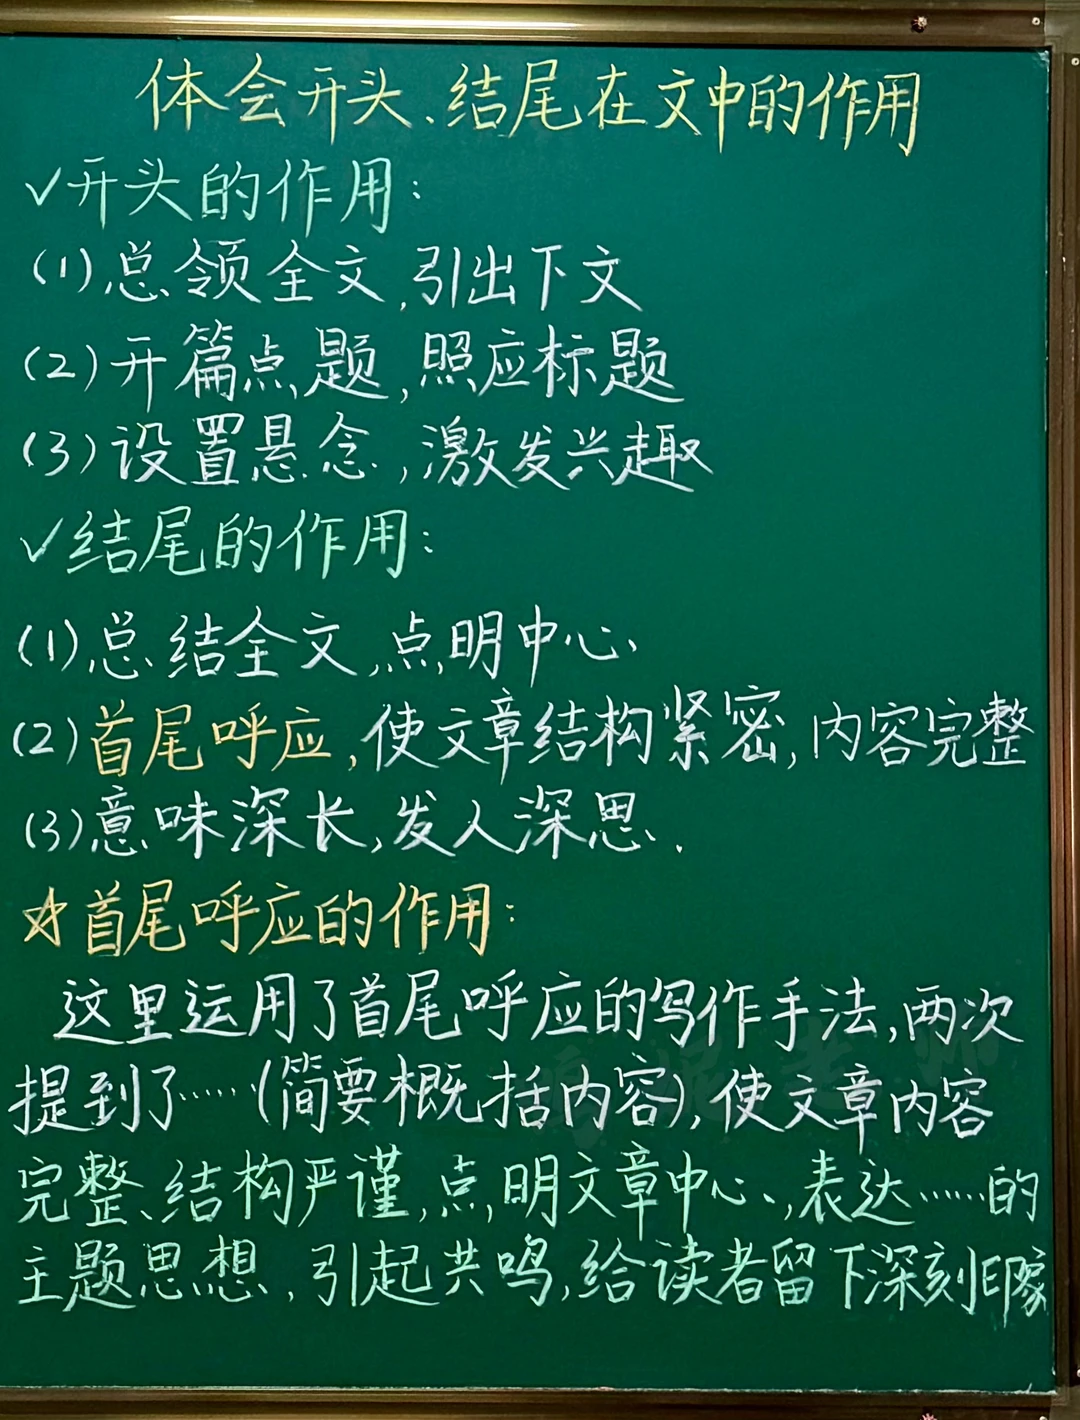 体会开头、结尾在文中的作用
✓开头的作用:
(1)总领全文,引出下文
(2)开篇点题,照应标题
(3)设置悬念,激发兴趣
✓结尾的作用:
(1)总结全文,点明中心
(2)首尾呼应,使文章结构紧密,内容完整
(3)意味深长,发人深思.
☆首尾呼应的作用:
这里运用了首尾呼应的写作手法,两次
提到了……(简要概括内容),使文章内容
完整、结构严谨,点明文章中心,表达……的
主题思想,引起共鸣,给读者留下深刻印象